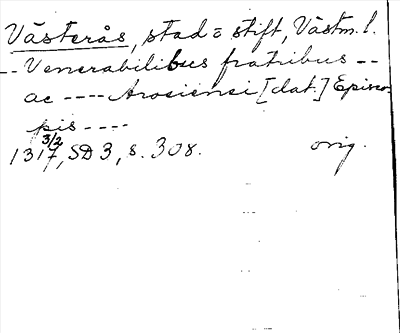 Västerås, stad= stift, Västm. l.
-- Venerabilibus fratribus --
ac ---- Arosiensi [dat.] Episco
pis ----
1317 3/2, SD 3, s. 308. orig.